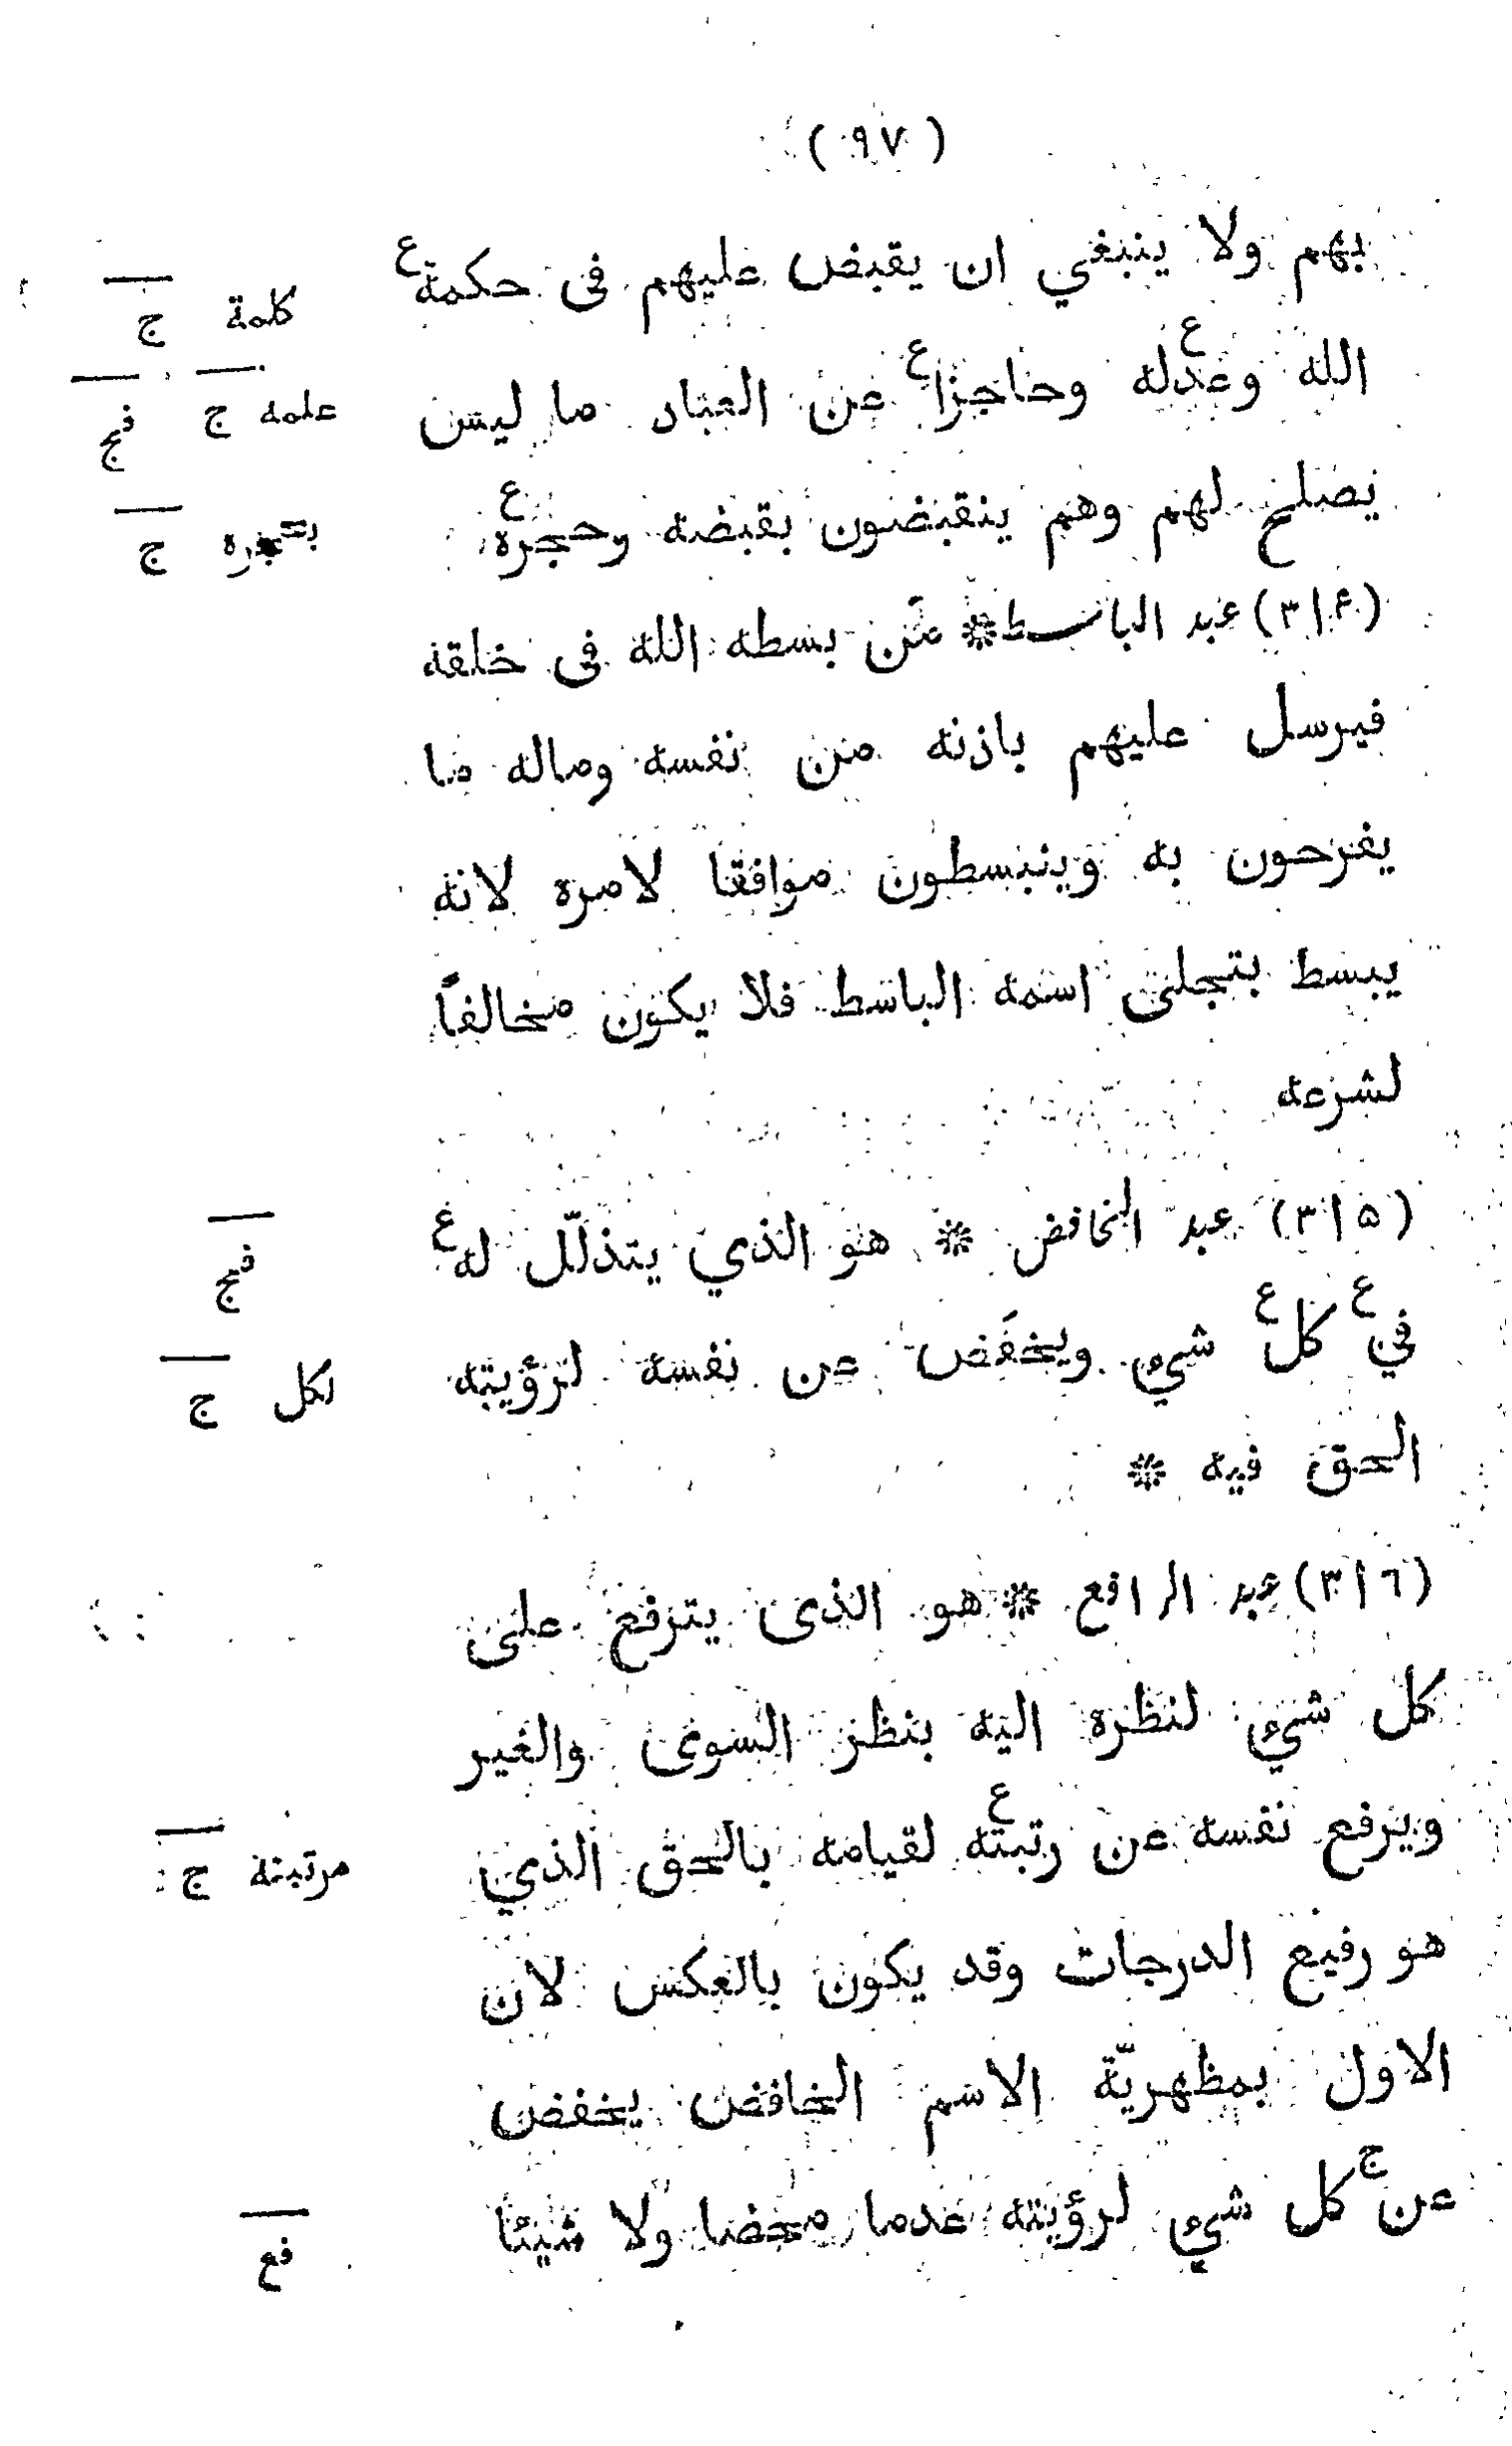 ( ٩٧ )
بهم ولا ينبغي ان يقبض عليهم فى حكمة ع
كلمة ج
الله وعدله ع وحاجزا ع عن العباد ما ليس
علمه ج فج
يصلح لهم وهم ينقبضون بقبضه وحجره ع
ج
(٣١٤) عبد الباسط * من بسطه الله فى خلقه
فيرسل عليهم باذنه من نفسه وماله ما
يفرحون به وينبسطون موافقا لامره لانه
يبسط بتجلى اسمه الباسط فلا يكون مخالفاً
لشرعه
(٣١٥) عبد الخافض * هو الذي يتذلّل له ع
فج
في ع كل ع شيء ويخفَض عن نفسه لرؤيته
لكل ج
الحق فيه *
(٣١٦) عبد الرافع * هو الذى يترفع على
كل شيء لنظره اليه بنظر السوى والغير
ويرفع نفسه عن رتبته ع لقيامه بالحق الذي
مرتبته ج
هو رفيع الدرجات وقد يكون بالعكس لان
الاول بمظهريّة الاسم الخافض يخفض
عن ج كل شيء لرؤيته عدما محضا ولا شيئا
فع